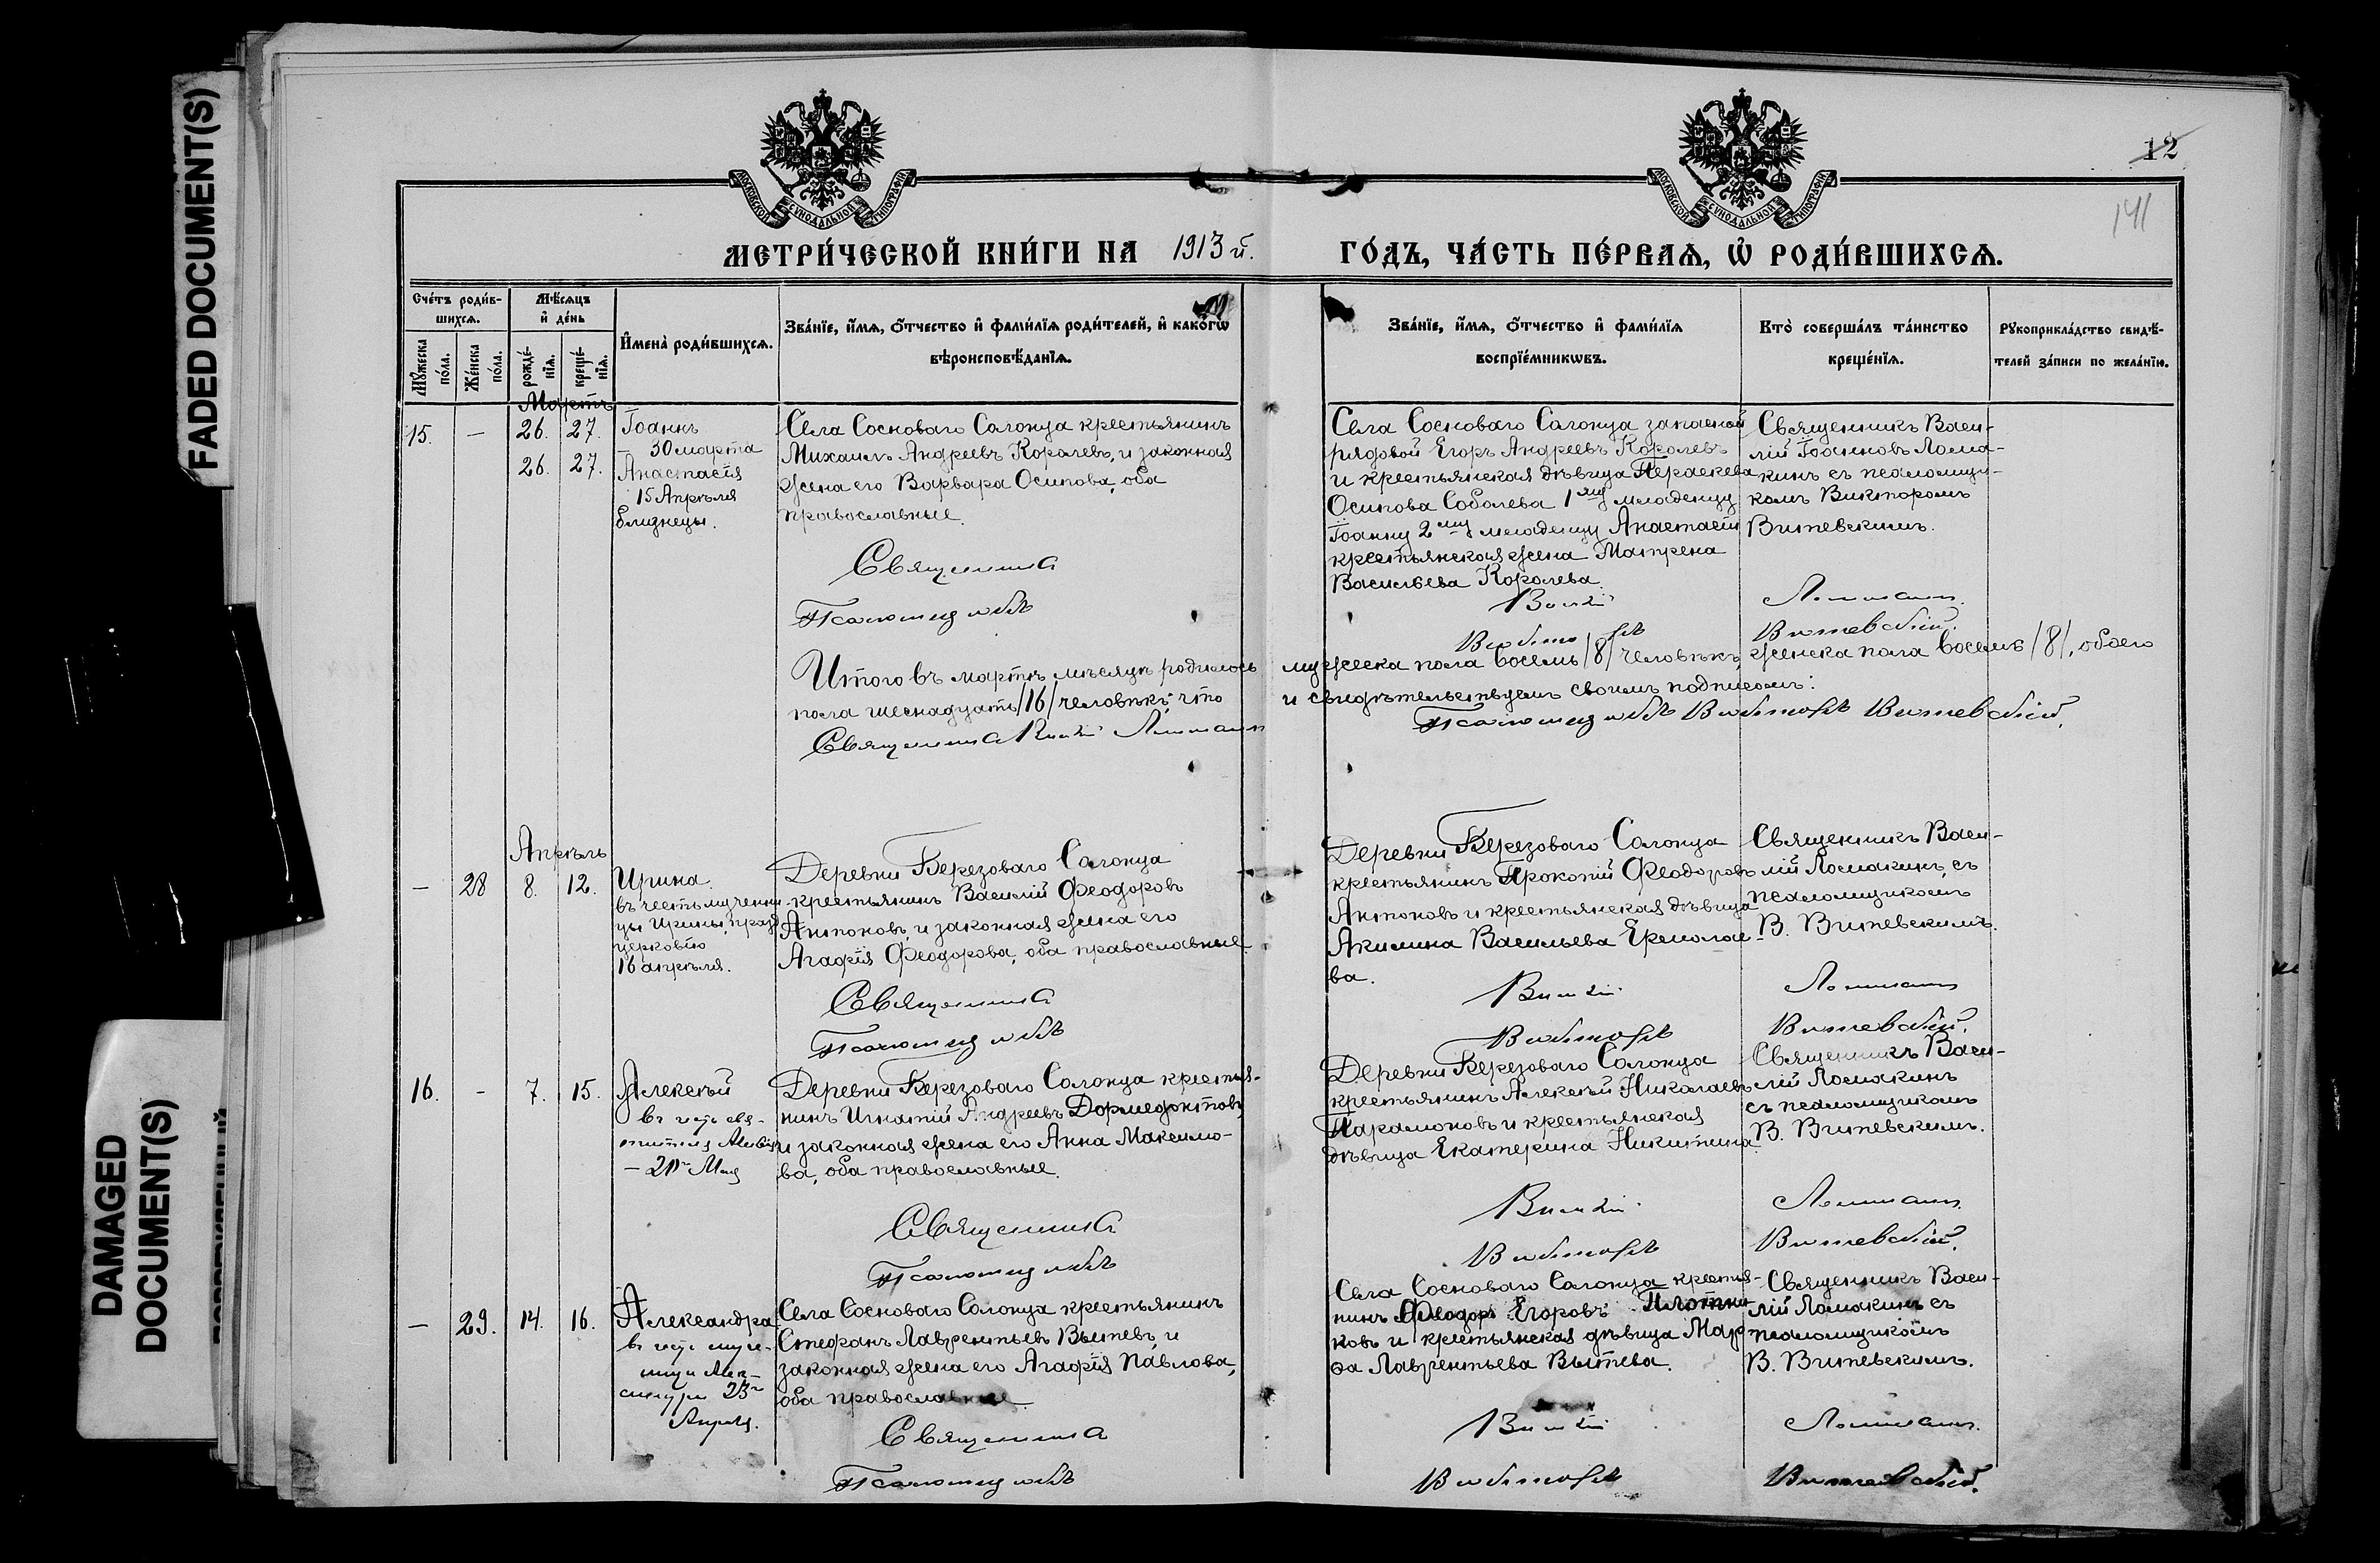 FADED DOCUMENT(S)
DAMAGED
DOCUMENT(S)
МОСКОВСКОЙ СѴНОДАЛЬНОЙ ТИПОГРАФІИ
МОСКОВСКОЙ СѴНОДАЛЬНОЙ ТИПОГРАФІИ
12
141
МЕТРИ́ЧЕСКОЙ КНИ́ГИ НА 1913 й. ГО́ДЪ, ЧА́СТЬ ПЕ́РВАѦ, Ѽ РОДИ́ВШИХСѦ.
Сче́тъ роди́в-
шихсѧ.
Мꙋ́жеска
по́ла.
Же́нска
по́ла.
Мѣ́сѧцъ
и҆ де́нь
рожде́-
нїѧ.
креще́-
нїѧ.
И҆мена̀ роди́вшихсѧ.
Зва́нїе, и҆́мѧ, ѻ҆́тчество и҆ фами́лїѧ роди́телей, и҆ како́гѡ
вѣроисповѣ́данїѧ.
Зва́нїе, и҆́мѧ, ѻ҆́тчество и҆ фами́лїѧ
воспрїе́мникѡвъ.
Кто̀ соверша́лъ та́инство
креще́нїѧ.
Рꙋкоприкла́дство свидѣ́-
телей за́писи по жела́нїю.
Мартъ
15. — 26. 27.
26. 27.
Іоаннъ
30 марта
Анастасія
15 Апрѣля
близнецы.
Села Сосноваго Солонца крестьянинъ
Михаилъ Андреевъ Королевъ, и законная
жена его Варвара Осипова, оба
православные.
Села Сосноваго Солонца запасной
рядовой Егоръ Андреевъ Королевъ
и крестьянская дѣвица Пераскева
Осипова Соболева 1 му младенцу
Іоанну 2 му младенцу Анастасіи
крестьянская жена Матрена
Васильева Королева.
Священникъ Васи-
лій Іоанновъ Лома-
кинъ съ псаломщи-
комъ Викторомъ
Витевскимъ.
Священникъ Василій Ломакин
Псаломщикъ Викторъ Витевскій.
Итого въ мартѣ мѣсяцѣ родилось мужеска пола восемь /8/ человѣкъ, женска пола восемь /8/, обоего
пола шеснадцать /16/ человѣкъ; что и свидѣтельствуемъ своимъ подписомъ:
Священникъ Василій Ломакин Псаломщикъ Викторъ Витевскій.
Апрѣль
— 28 8. 12.
Ирина.
въ честь мучени-
цы Ирины, праз.
церковію
16 апрѣля.
Деревни Березоваго Солонца
крестьянинъ Василій Феодоровъ
Антоновъ, и законная жена его
Агафія Феодорова, оба православные.
Деревни Березоваго Солонца
крестьянинъ Прокопій Феодоровъ
Антоновъ и крестьянская дѣвица
Акилина Васильева Ермолае-
ва.
Священникъ Васи-
лій Ломакинъ, съ
псаломщикомъ
В. Витевскимъ.
Священникъ Василій Ломакин
Псаломщикъ Викторъ Витевскій.
16. - 7. 15.
Алексѣй
въ честь свя-
тителя Алексія
— 20го Мая
Деревни Березоваго Солонца крестья-
нинъ Игнатій Андреевъ Дормедонтовъ,
и законная жена его Анна Максимо-
ва, оба православные.
Деревни Березоваго Солонца
крестьянинъ Алексѣй Николаевъ
Парамоновъ и крестьянская
дѣвица Екатерина Никитина.
Священникъ Васи-
лій Ломакинъ
съ псаломщикомъ
В. Витевскимъ.
Священникъ Василій Ломакин.
Псаломщикъ Викторъ Витевскій.
— 29. 14. 16.
Александра
въ честь муче-
ницы Алек-
сандры 23го
Апрѣля.
Села Сосноваго Солонца крестьянинъ
Стефанъ Лаврентьевъ Вытевъ, и
законная жена его Агафія Павлова,
оба православные.
Села Сосноваго Солонца крестья-
нинъ Феодоръ Егоровъ Плотни-
ковъ и крестьянская дѣвица Мар-
ѳа Лаврентьева Вытева.
Священникъ Васи-
лій Ломакинъ съ
псаломщикомъ
В. Витевскимъ.
Священникъ Василій Ломакин.
Псаломщикъ Викторъ Витевскій.